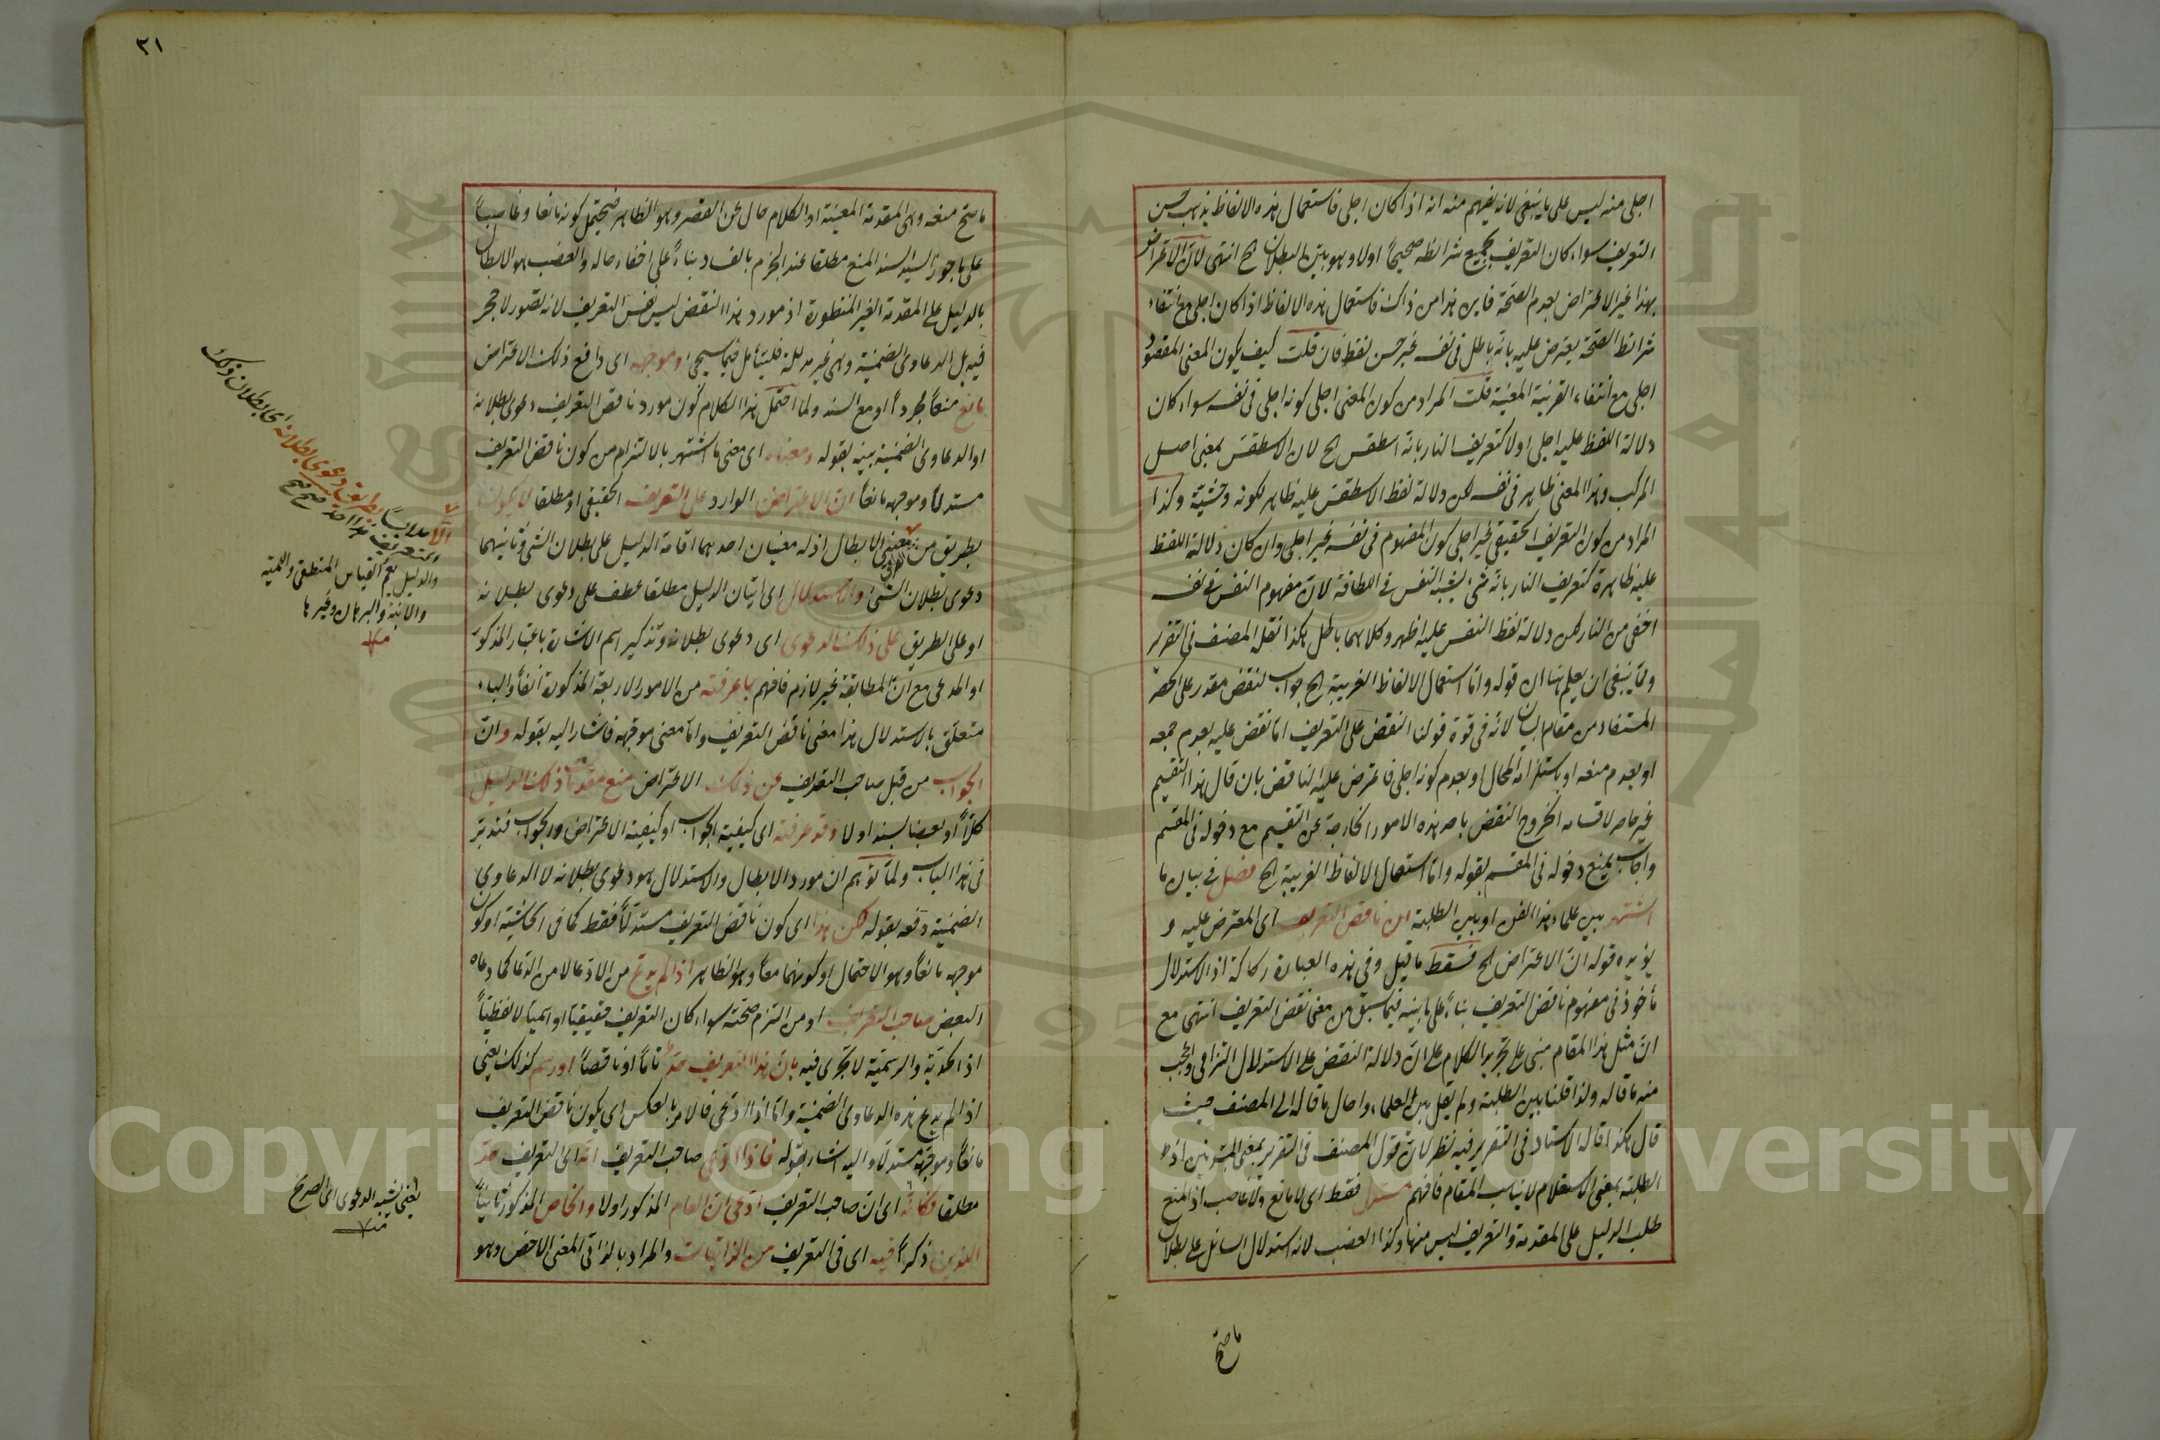 اجلى منه ليس على ما ينبغى لانه يفهم منه انه اذا كان اجلى فاستعمال هذه الالفاظ يذهب حسن
التعريف سواء كان التعريف بجميع شرائطه صحيحا اولا وهو بين البطلان ح انتهى لان الاعتراض
بهذا غير الاعتراض بعدم الصحة فاين هذا من ذاك فاستعمال هذه الالفاظ اذا كان اجلى مع انتفاء
شرائط الصحة يعترض عليه بانه باطل فى نفسه غير حسن لفظه فان قلت كيف يكون المعنى المقصود
اجلى مع انتفاء القرينة المعينة قلت المراد من كون المعنى اجلى كونه اجلى فى نفسه سواء كان
دلالة اللفظ عليه اجلى اولا كتعريف النار بانه اسطقس الخ لان الاسطقس بمعنى اصل
المركب وهذا المعنى ظاهر فى نفسه لكن دلالة لفظ الاسطقس عليه ظاهر لكونه وحشية وكذا
المراد من كون التعريف الحقيقى غير اجلى كون المفهوم فى نفسه غير اجلى وان كان دلالة اللفظ
عليه ظاهرة كتعريف النار بانه شئ يشبه النفس فى اللطافة لان مفهوم النفس فى نفسه
اخفى من النار لكن دلالة لفظ النفس عليه اظهر وكلاهما باطل هكذا نقل المصنف فى التقرير
ومما ينبغى ان يعلم هنا ان قوله واما استعمال الالفاظ الغريبة الخ جواب لنقض مقدر على الحصر
المستفاد من مقام البيان لانه فى قوة قولنا النقض على التعريف اما نقض عليه بعدم جمعه
او بعدم منعه او باستلزامه المحال او بعدم كونه اجلى فاعترض عليه الناقض بان قال هذا التقسيم
غير حاصر لاقسامه لخروج النقض باحد هذه الامور الخارجة عن التقسيم مع دخوله فى المقسم
واجاب بمنع دخوله فى المقسم بقوله واما استعمال الالفاظ الغريبة الخ فصل فى بيان ما
اشتهر بين علماء هذا الفن او بين الطلبة ان ناقض التعريف اى المعترض عليه و
يؤيده قوله ان الاعتراض الخ فسقط ما قيل وفى هذه العبارة ركاكة اذ الاستدلال
مأخوذ فى مفهوم ناقض التعريف بناء على ما بينه فيما سبق من معنى نقض التعريف انتهى مع
ان مثل هذا المقام مبنى على تجريد الكلام على ان دلالة النقض على الاستدلال التزامى والعجب
منه ما قاله ولذا قلنا بين الطلبة ولم يقل بين العلماء واحال ما قاله الى المصنف حيث
قال هكذا قاله الاستاد فى التقرير فيه نظر لان قول المصنف فى التقرير بمعنى المتردين اذ
الطلبة بمعنى الاستعلام لا يناسب المقام فافهم مستدل فقط اى لا مانع ولا غاصب اذ المنع
طلب الدليل على المقدمة والتعريف ليس منها وكذا الغصب لانه استدلال السائل على بطلان
ما صح
٣١
ما صح منعه وهى المقدمة المعينة اذ الكلام خال عن القصر وهو الظاهر فيحتمل كونه مانعا وغاصبا
على ما جوز السيد السند المنع مطلقا عند الجزم بالفساد بناء على اخفاء حاله والغصب هو الابطال
بالدليل على المقدمة الغير المنظورة اذ مورد هذا النقض ليس نفس التعريف لانه تصور لا حجر
فيه بل الدعاوى الضمنية وهى غير مدللة فليتأمل فيما سيجئ وموجهه اى دافع ذلك الاعتراض
مانع منعا مجردا او مع السند ولما احتمل هذا الكلام كون مورد ناقض التعريف دعوى بطلانه
او الدعاوى الضمنية بينه بقوله ومعناه اى معنى ما اشتهر بالالتزام من كون ناقض التعريف
مستدلا وموجهه مانعا ان الاعتراض الوارد على التعريف الحقيقى او مطلقا لا يكون الا
بطريق من معنى الابطال اذ له معنيان احدهما اقامة الدليل على بطلان الشئ وثانيهما
دعوى بطلان الشئ والاستدلال اى اتيان الدليل مطلقا عطف على دعوى بطلانه
او على الطريق على ذلك الدعوى اى دعوى بطلانه وتذكير اسم الاشارة باعتبار المذكور
او المدعى مع ان المطابقة غير لازم فافهم بما عرفته من الامور الاربعة المذكورة آنفا والباء
متعلق بالاستدلال هذا معنى ناقض التعريف واما معنى موجهه فاشار اليه بقوله وان
الجواب من قبل صاحب التعريف عن ذلك الاعتراض منع مقدمات ذلك الدليل
كلا او بعضا بسند اولا وقد عرفته اى كيفية الجواب او كيفية الاعتراض والجواب فتدبر
فى هذا الباب ولما توهم ان مورد الابطال والاستدلال هو دعوى بطلانه لا الدعاوى
الضمنية دفعه بقوله لكن هذا اى كون ناقض التعريف مستدلا فقط كما فى الحاشية او كون
موجهه مانعا وهو الاحتمال او كونهما معا وهو الظاهر اذا لم يدع من الادعاء لا من الدعاء كما دعاه
البعض صاحب التعريف او من التزم صحته سواء كان التعريف حقيقيا او اسميا لا لفظيا
اذ الحدية والرسمية لا تجرى فيه بان هذا التعريف حد تاما او ناقصا او رسم كذلك يعنى
اذا لم يدع هذه الدعاوى الضمنية واما اذا ادعى فالامر بالعكس اى يكون ناقض التعريف
مانعا وموجهه مستدلا واليه اشار بقوله فاذا ادعى صاحب التعريف انه اى التعريف حد
مطلقا فكانه اى ان صاحب التعريف ادعى ان العام المذكور اولا والخاص المذكور ثانيا
اللذين ذكرا فيه اى فى التعريف من الذاتيات والمراد بالذاتى المعنى الاخص وهو
بطريق دعوى بطلانه اى بطلان ذلك
والدليل يعم القياس المنطقى واللمية
والانية والبرهان وغيرها
منه
يعنى يشبه الدعوى اى الصريح
منه
Copyright © King Saud University
1957